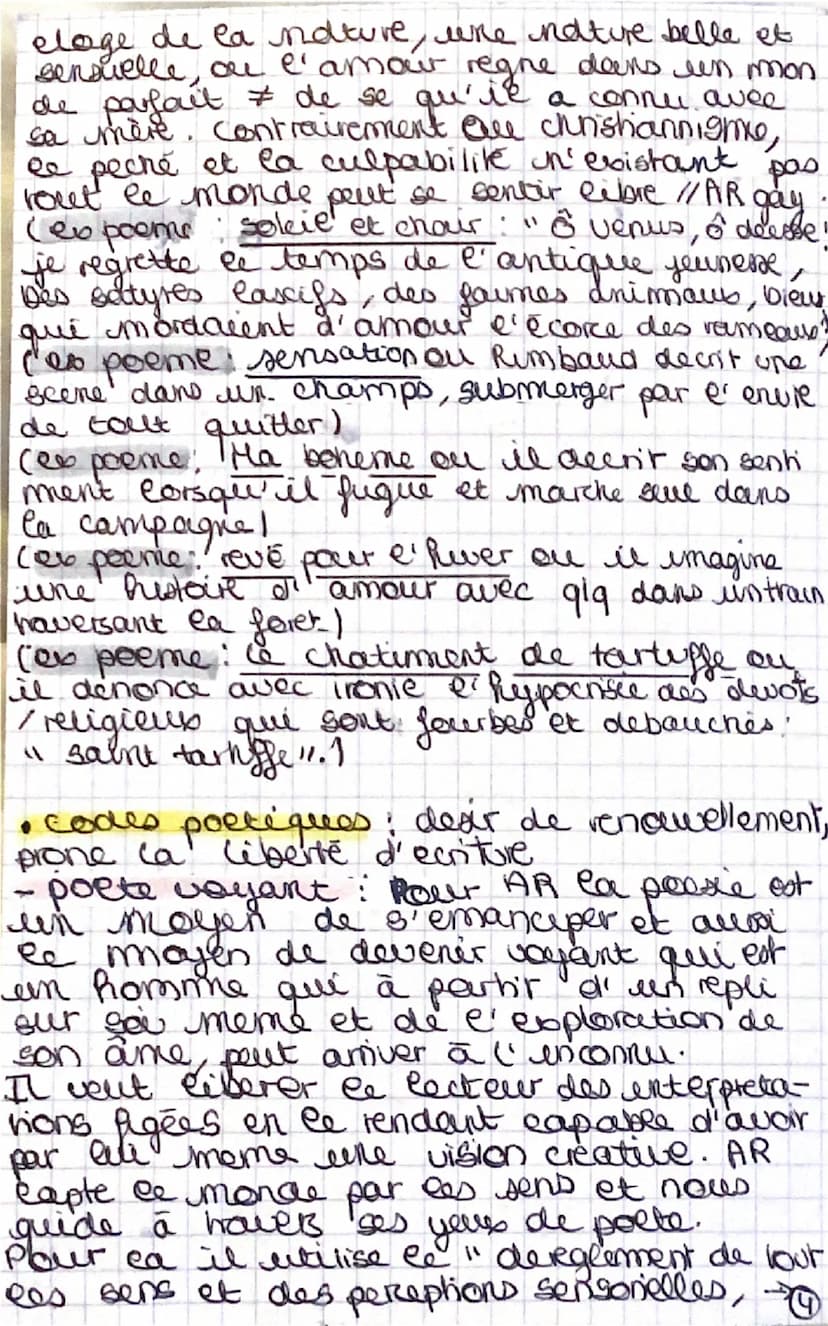 eloge de la nature, une nature belle et
sensuelle, ou l'amour règne dans un mon
de parfait ≠ de se qu'il a connu avec
sa mère. Contrairement au christiannigme,
le peché et la culpabilité n'existant pas
tout le monde peut se sentir libre // AR gay.
(ex poeme : soleil et chair : " Ô Venus, ô déesse!
je regrette le temps de l'antique jeunesse,
Des satyres lascifs, des faunes animaux, Dieux
qui mordaient d'amour l'écorce des rameaux")
(ex poeme : sensation ou Rimbaud decrit une
scene dans un champs, submerger par l'envie
de tout quitter)
(ex poeme : Ma boheme ou il decrit son senti
ment lorsqu'il fugue et marche seul dans
la campagne)
(ex poeme : revé pour l'hiver ou il imagine
une histoire d'amour avec qlq dans un train
traversant la foret)
(ex poeme : le chatiment de tartuffe ou
il denonce avec ironie l'hypocrisie des devots
/ religieux qui sont fourbes et debauchés :
" saint tartuffe".)
• codes poetiques : desir de renouvellement,
prone la liberté d'ecriture
- poete voyant : Pour AR la poesie est
un moyen de s'emanciper et aussi
le moyen de devenir voyant qui est
un homme qui à partir d'un repli
sur soi meme et de l'exploration de
son âme, peut arriver à l'inconnu.
Il veut liberer le lecteur des interpreta-
tions figées en le rendant capable d'avoir
par lui meme une vision creative. AR
capte le monde par les sens et nous
guide à travers ses yeux de poete.
Pour ca il utilise le " dereglement de tout
les sens et des perceptions sensorielles, → 4